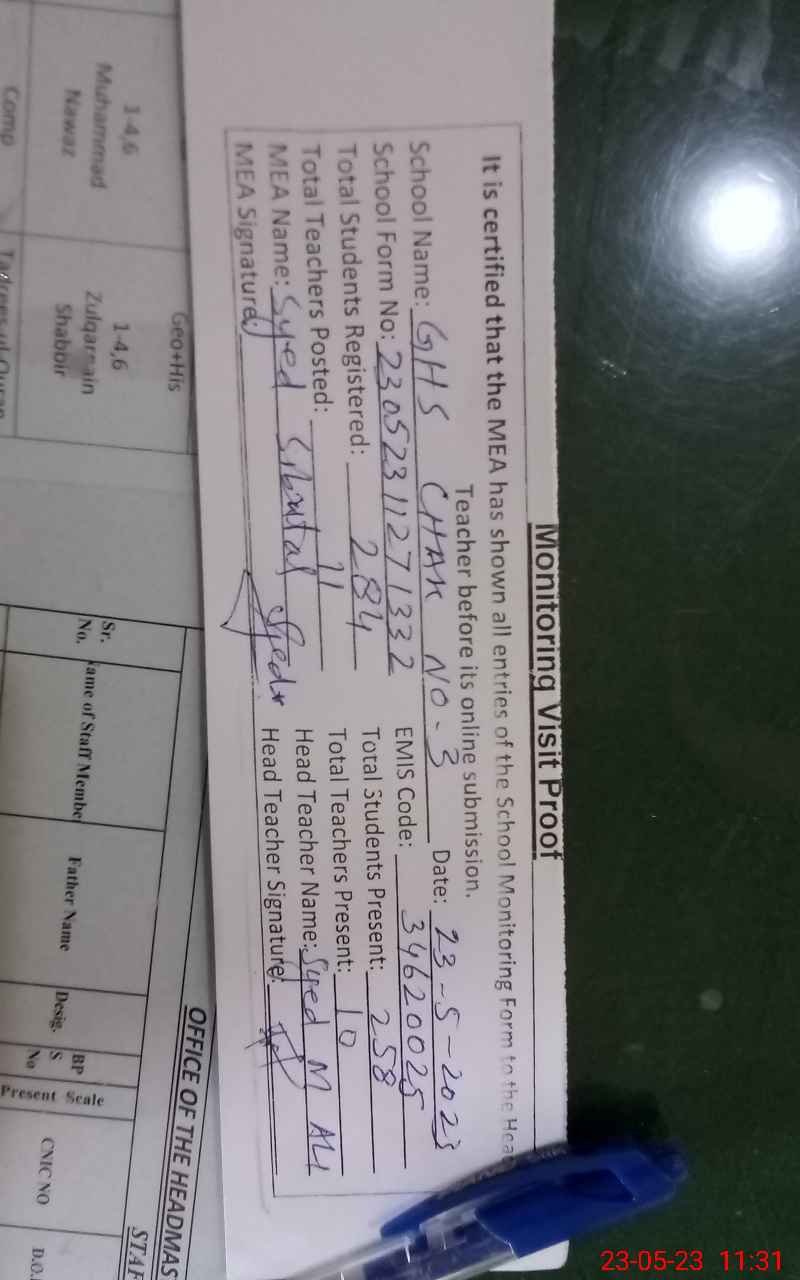 Monitoring Visit Proof
It is certified that the MEA has shown all entries of the School Monitoring Form to the Hea
Teacher before its online submission.
School Name: GHS CHAK NO-3 Date: 23-5-2023
School Form No: 23052311271332 EMIS Code: 34620025
Total Students Registered: 284 Total Students Present: 258
Total Teachers Posted: 11 Total Teachers Present: 10
MEA Name: Syed Head Teacher Name: Syed M ALi
MEA Signature: Head Teacher Signature:
Geo+His
1-4,6 1-4,6
Muhammad Zulqarnain
Nawaz Shabbir
Comp
OFFICE OF THE HEADMAS
STAF
Sr. No. ame of Staff Membe Father Name Desig. BP S No Present Scale CNIC NO D.O.
23-05-23 11:31